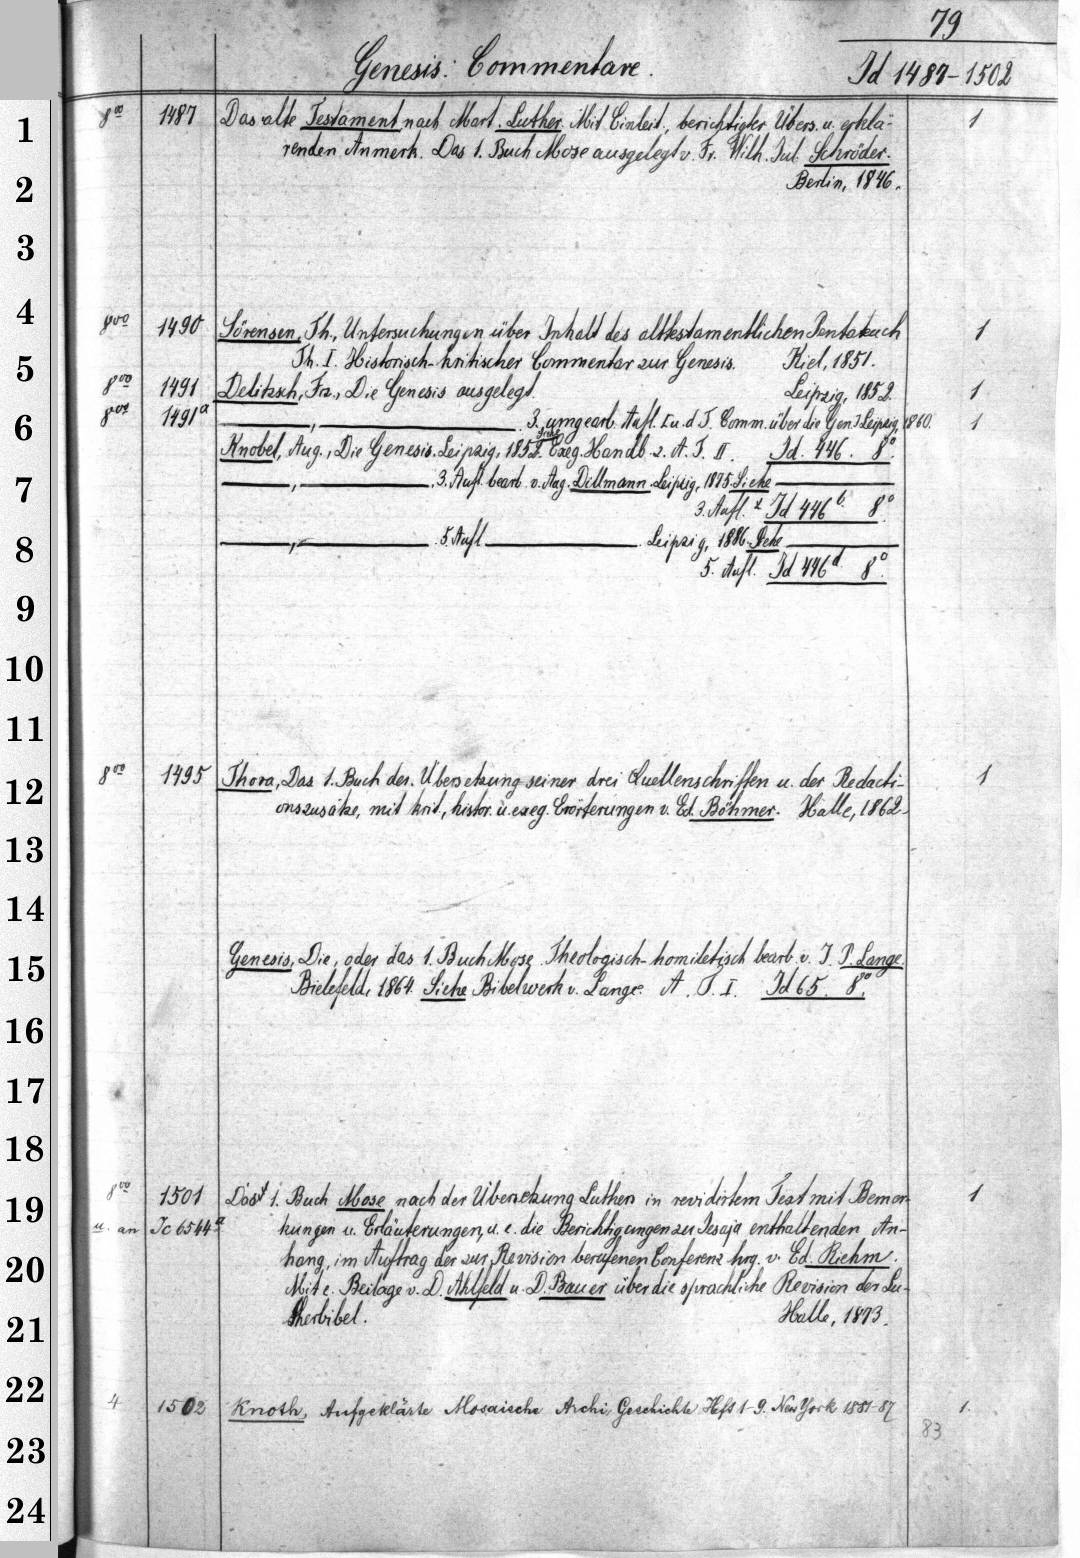 79
Genesis: Commentare. Id 1487-1502
8⁰⁰ 1487 Das alte Testament nach Mart. Luther. Mit Einleit., berichtigter Übers. u. erklä- 1
renden Anmerk. Das 1. Buch Mose ausgelegt v. Fr. Wilh. Jul. Schröder.
Berlin, 1846.
8⁰⁰ 1490 Sörensen, Th., Untersuchungen über Inhalt des alttestamentlichen Pentateuch 1
Th. I. Historisch-kritischer Commentar zur Genesis. Kiel, 1851.
8⁰⁰ 1491 Delitzsch, Frz., Die Genesis ausgelegt. Leipzig, 1852. 1
8⁰⁰ 1491ᵃ ———, ———. 3. umgearb. Aufl. [u. d. T. Comm. über die Gen.] Leipzig, 1860. 1
Knobel, Aug., Die Genesis. Leipzig, 1852. Siehe Exeg. Handb. z. A. T. II. Id. 446. 8⁰.
———, ———. 3. Aufl. bearb. v. Aug. Dillmann. Leipzig, 1875. Siehe ———
3. Aufl. Id 446ᵇ 8⁰
———, ———. 5. Aufl. ———. Leipzig, 1886. Siehe ———
5. Aufl. Id 446ᵈ 8⁰.
8⁰⁰ 1495 Thora, Das 1. Buch der. Übersetzung seiner drei Quellenschriften u. der Redacti- 1
onszusätze, mit krit., histor. u. exeg. Erörterungen v. Ed. Böhmer. Halle, 1862.
Genesis, Die, oder das 1. Buch Mose. Theologisch-homiletisch bearb. v. J. P. Lange.
Bielefeld, 1864. Siehe Bibelwerk v. Lange. A. T. I. Id 65. 8⁰.
8⁰⁰ 1501 Das 1. Buch Mose nach der Übersetzung Luthers in revidirtem Text mit Bemer- 1
u. an Ic 6544ᵃ kungen u. Erläuterungen, u. e. die Berichtigungen zu Jesaja enthaltenden An-
hang, im Auftrag der zur Revision berufenen Conferenz hrg. v. Ed. Riehm.
Mit e. Beilage v. D. Ahlfeld u. D. Bauer über die sprachliche Revision der Lu-
therbibel. Halle, 1873.
4 1502 Knoth, Aufgeklärte Mosaische Archi Geschichte Heft 1-9. New York 1881-87 1.
83
1
2
3
4
5
6
7
8
9
10
11
12
13
14
15
16
17
18
19
20
21
22
23
24